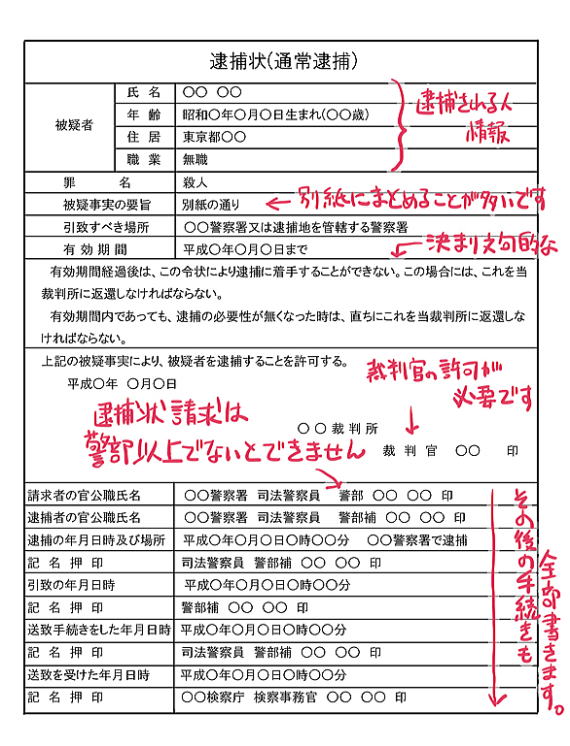 逮捕状(通常逮捕)
被疑者
氏 名 〇〇 〇〇
年 齢 昭和〇年〇月〇日生まれ(〇〇歳)
住 居 東京都〇〇
職 業 無職
逮捕される人
情報
罪 名 殺人
被疑事実の要旨 別紙の通り
←別紙にまとめることが多いです
引致すべき場所 〇〇警察署又は逮捕地を管轄する警察署
有 効 期 間 平成〇年〇月〇日まで
←決まり文句的な
有効期間経過後は、この令状により逮捕に着手することができない。この場合には、これを当
裁判所に返還しなければならない。
有効期間内であっても、逮捕の必要性が無くなった時は、直ちにこれを当裁判所に返還しな
ければならない。
上記の被疑事実により、被疑者を逮捕することを許可する。
平成〇年 〇月〇日
裁判官の許可が
必要です
〇〇裁判所
裁 判 官 〇〇 印
逮捕状請求は
警部以上でないとできません
請求者の官公職氏名 〇〇警察署 司法警察員 警部 〇〇 〇〇 印
逮捕者の官公職氏名 〇〇警察署 司法警察員 警部補 〇〇 〇〇 印
逮捕の年月日時及び場所 平成〇年〇月〇日〇時〇〇分 〇〇警察署で逮捕
記 名 押 印 司法警察員 警部補 〇〇 〇〇 印
引致の年月日時 平成〇年〇月〇日〇時〇〇分
記 名 押 印 警部補 〇〇 〇〇 印
送致手続きをした年月日時 平成〇年〇月〇日〇時〇〇分
記 名 押 印 司法警察員 警部補 〇〇 〇〇 印
送致を受けた年月日時 平成〇年〇月〇日〇時〇〇分
記 名 押 印 〇〇検察庁 検察事務官 〇〇 〇〇 印
その後の手続きも
全部書きます。